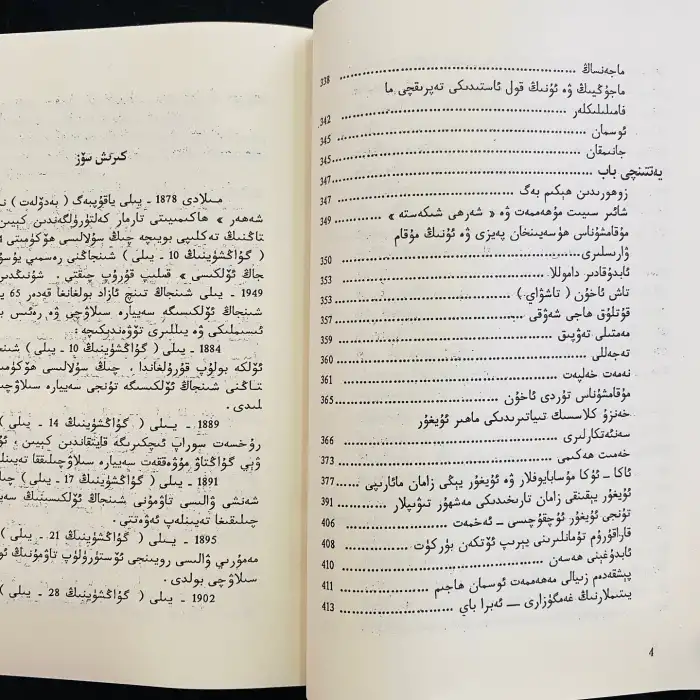 ماجەنساڭ 338
ماجۇڭيىڭ ۋە ئۇنىڭ قول ئاستىدىكى تەپرىقچى ما
فامىلىلىكلەر 342
ئوسمان 345
جانىمقان 345
يەتتىنچى باب 347
زوھورىدىن ھېكىم بەگ 347
شائىر سىيىت مۇھەممەت ۋە « شەرھى شىكەستە » 349
مۇقامشۇناس ھۈسەيىنخان پەيزى ۋە ئۇنىڭ مۇقام
ۋارىسلىرى 350
ئابدۇقادىر داموللا 353
تاش ئاخۇن ( تاشۋاي ) 353
قۇتلۇق ھاجى شەۋقى 357
مەمتىلى تەۋپىق 359
تەجەللى 360
نەمەت خەلپەت 361
مۇقامشۇناس تۇردى ئاخۇن 365
خەنزۇ كلاسسىك تىياتىرىدىكى ماھىر ئۇيغۇر
سەنئەتكارلىرى 366
خەمىت ھەكىمى 373
ئاكا ـ ئۇكا مۇسابايوفلار ۋە ئۇيغۇر يېڭى زامان مائارىپى 377
ئۇيغۇر يېقىنقى زامان تارىخىدىكى مەشھۇر تىۋىپلار 391
تۇنجى ئۇيغۇر ئۇچقۇچىسى ـ ئەخمەت 406
قاراقۇرۇم تۇمانلىرىنى يېرىپ ئۆتكەن بۈركۈت 408
ئابدۇغېنى ھەسەن 410
پىشقەدەم زىيالى مەھەممەت ئوسمان ھاجىم 411
يىتىملارنىڭ غەمگۇزارى ـ ئەبرا باي 413
4
كىرىش سۆز
مىلادى 1878 ـ يىلى ياقۇپبەگ ( بەدۆلەت )
شەھەر » ھاكىمىيىتى تارمار كەلتۈرۈلگەندىن كېيىن
تاڭنىڭ تەكلىپى بويىچە چىڭ سۇلالىسى ھۆكۈمىتى
( گۇاڭشۈينىڭ 10 ـ يىلى ) شىنجاڭنى رەسمىي
جاڭ ئۆلكىسى » قىلىپ قۇرۇپ چىقتى .
1949 ـ يىلى شىنجاڭ تىنچ ئازاد بولغانغا قەدەر 65
شىنجاڭ ئۆلكىسىگە سەييارە سىلاۋچى ۋە رەئىس
ئىسىملىكى ۋە يىللىرى تۆۋەندىكىچە :
1884 ـ يىلى ( گۇاڭشۈينىڭ 10 ـ يىلى )
ئۆلكە بولۇپ قۇرۇلغاندا ، چىڭ سۇلالىسى
تاڭنى شىنجاڭ ئۆلكىسىگە تۇنجى سەييارە
لىدى .
1889 ـ يىلى ( گۇاڭشۈينىڭ 14 ـ يىلى )
رۇخسەت سوراپ ئىچكىرىگە قايتقاندىن كېيىن ،
ۋېي گۇاڭتاۋ مۇۋەققەت سەييارە سىلاۋچىلىققا
1891 ـ يىلى ( گۇاڭشۈينىڭ 17 ـ يىلى )
شەنشى ۋالىسى تاۋمۇنى شىنجاڭ ئۆلكىسىنىڭ
چىلىقىغا تەيىنلەپ ئەۋەتتى .
1895 ـ يىلى ( گۇاڭشۈينىڭ 21 ـ يىلى )
مەمۇرىي ۋالىسى رويىنجى ئۆستۈرۈلۈپ تاۋمۇنىڭ
سىلاۋچى بولدى .
1902 ـ يىلى ( گۇاڭشۈينىڭ 28 ـ يىلى )